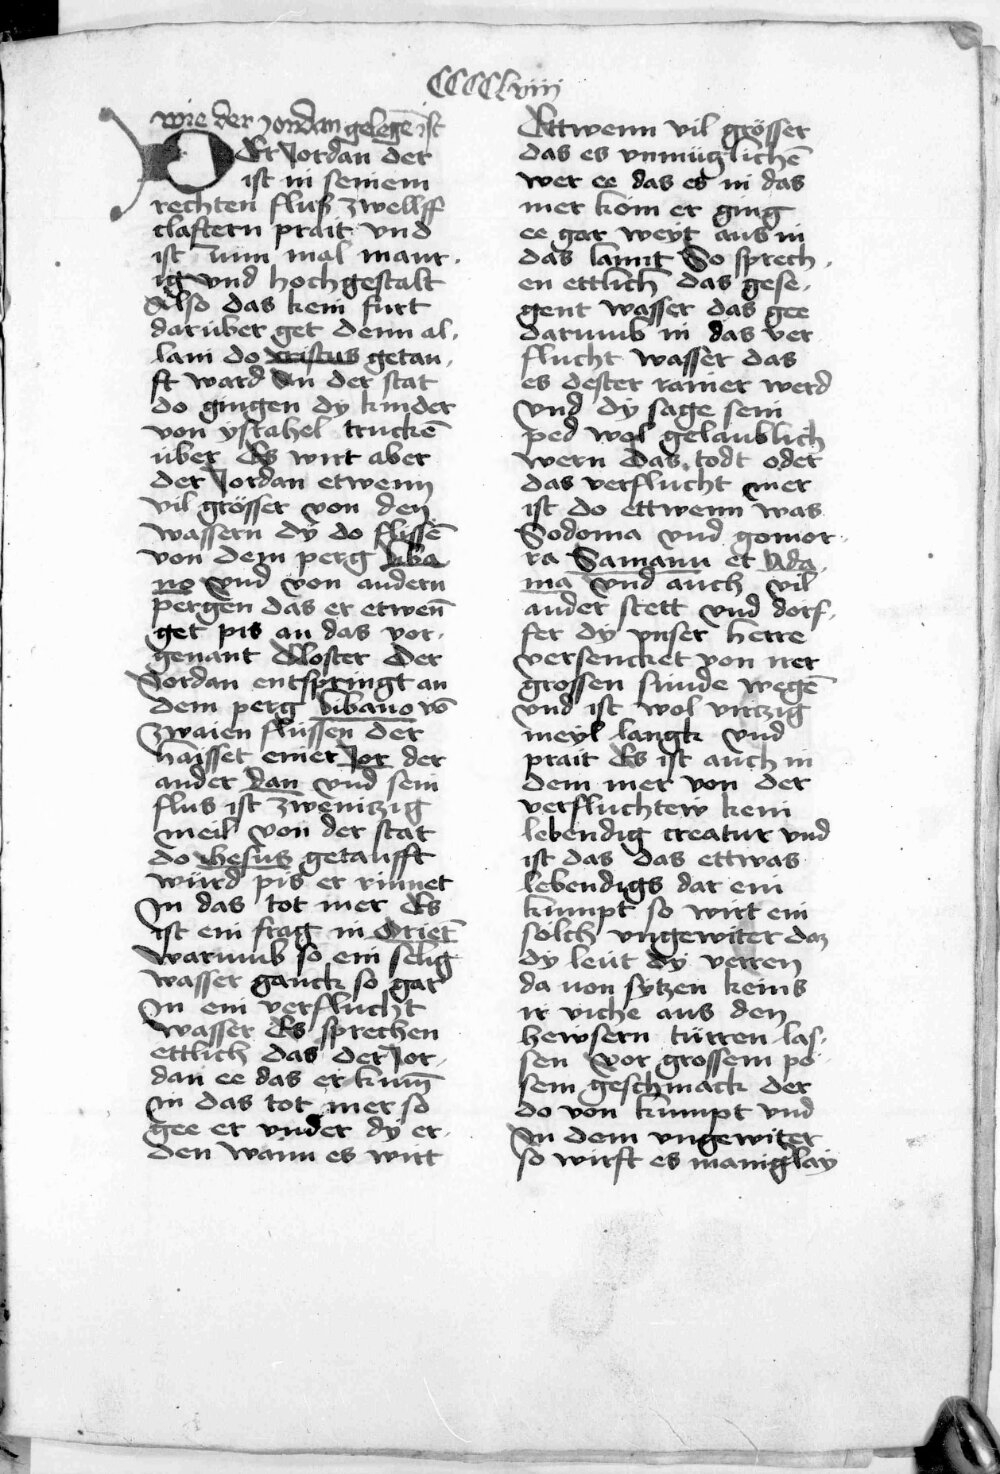 CCCCLviij
wie der Jordan gelegē ist
DEr Jordan der
ist in seinem
rechten fluß zwellff
claftern prait vnd
ist zum mal maur-
ig vnd hoch gestalt
Also das kein furt
darüber get denn al-
lain do cristus getau-
ft ward An der stat
do gingen dy kinder
von ysrahel truckē
über Es wirt aber
der Jordan etwenn
vil grösser von den
wassern dy do flissē
von dem perg liba
no vnd von andern
pergen das er etwen̄
get pis an das vor-
genant Closter Der
Jordan entspringt an
dem perg libano vō
zwaien flussen der
haisset einer Jor der
ander dan vnd sein
flus ist zweintzig
meil von der stat
do Jhesus getaufft
würd pis er rinnet
In das tot mer Es
ist ein frag in Oriēt
Warumb so ein selig
wasser ganck so gar
In ein verflucht
wasser Es sprechen
ettlich das der Jor-
dan ee das er kum̄
in das tot mer so
gee er vnder dy er-
den wann es wirt
Ettwenn vil grösser
das es vnmüglichē
wer ee das es in das
mer köm er ging
ee gar weyt aus in
das lannt So sprech-
en ettlich das gese-
gent wasser das gee
darumb in das ver
flucht wasser das
es dester rainer werd
vnd dy sage sein
ped wol gelaublich
wern Das todt oder
das verflucht mer
ist do ettwenn was
Sodoma vnd gomor-
ra Samaun et Ada
ma vnd auch vil
ander stett vnd dorf-
fer dy vnser herre
versencket von irer
grossen sunde wegē
vnd ist wol virtzig
meyl langk vnd
prait Es ist auch in
dem mer von der
verfluchtew kein
lebendig creatur vnd
ist das das ettwas
lebendigs dar ein
kumpt so wirt ein
solch vngewiter daz
dy leut dy verren
da von sytzen keins
ir viche aus den
hewsern türren las-
sen vor grossem pö-
sem geschmack der
do von kumpt vnd
In dem vngewiter
so wirft es maniglay